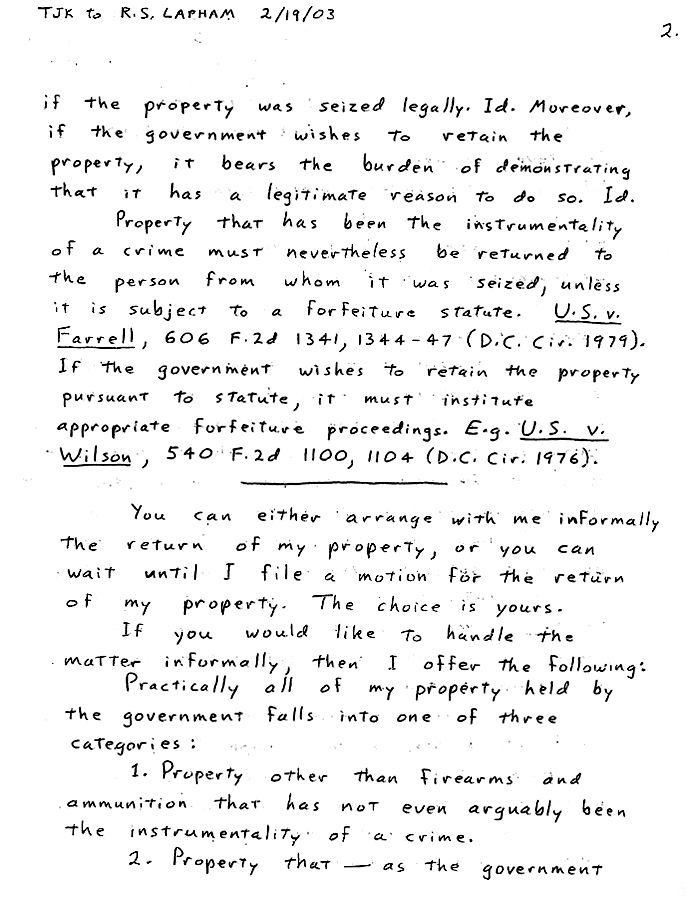 TJK to R.S. LAPHAM 2/19/03
2.
if the property was seized legally. Id. Moreover,
if the government wishes to retain the
property, it bears the burden of demonstrating
that it has a legitimate reason to do so. Id.
Property that has been the instrumentality
of a crime must nevertheless be returned to
the person from whom it was seized, unless
it is subject to a forfeiture statute. U.S. v.
Farrell, 606 F.2d 1341, 1344-47 (D.C. Cir. 1979).
If the government wishes to retain the property
pursuant to statute, it must institute
appropriate forfeiture proceedings. E.g. U.S. v.
Wilson, 540 F.2d 1100, 1104 (D.C. Cir. 1976).
You can either arrange with me informally
the return of my property, or you can
wait until I file a motion for the return
of my property. The choice is yours.
If you would like to handle the
matter informally, then I offer the following:
Practically all of my property held by
the government falls into one of three
categories:
1. Property other than firearms and
ammunition that has not even arguably been
the instrumentality of a crime.
2. Property that — as the government